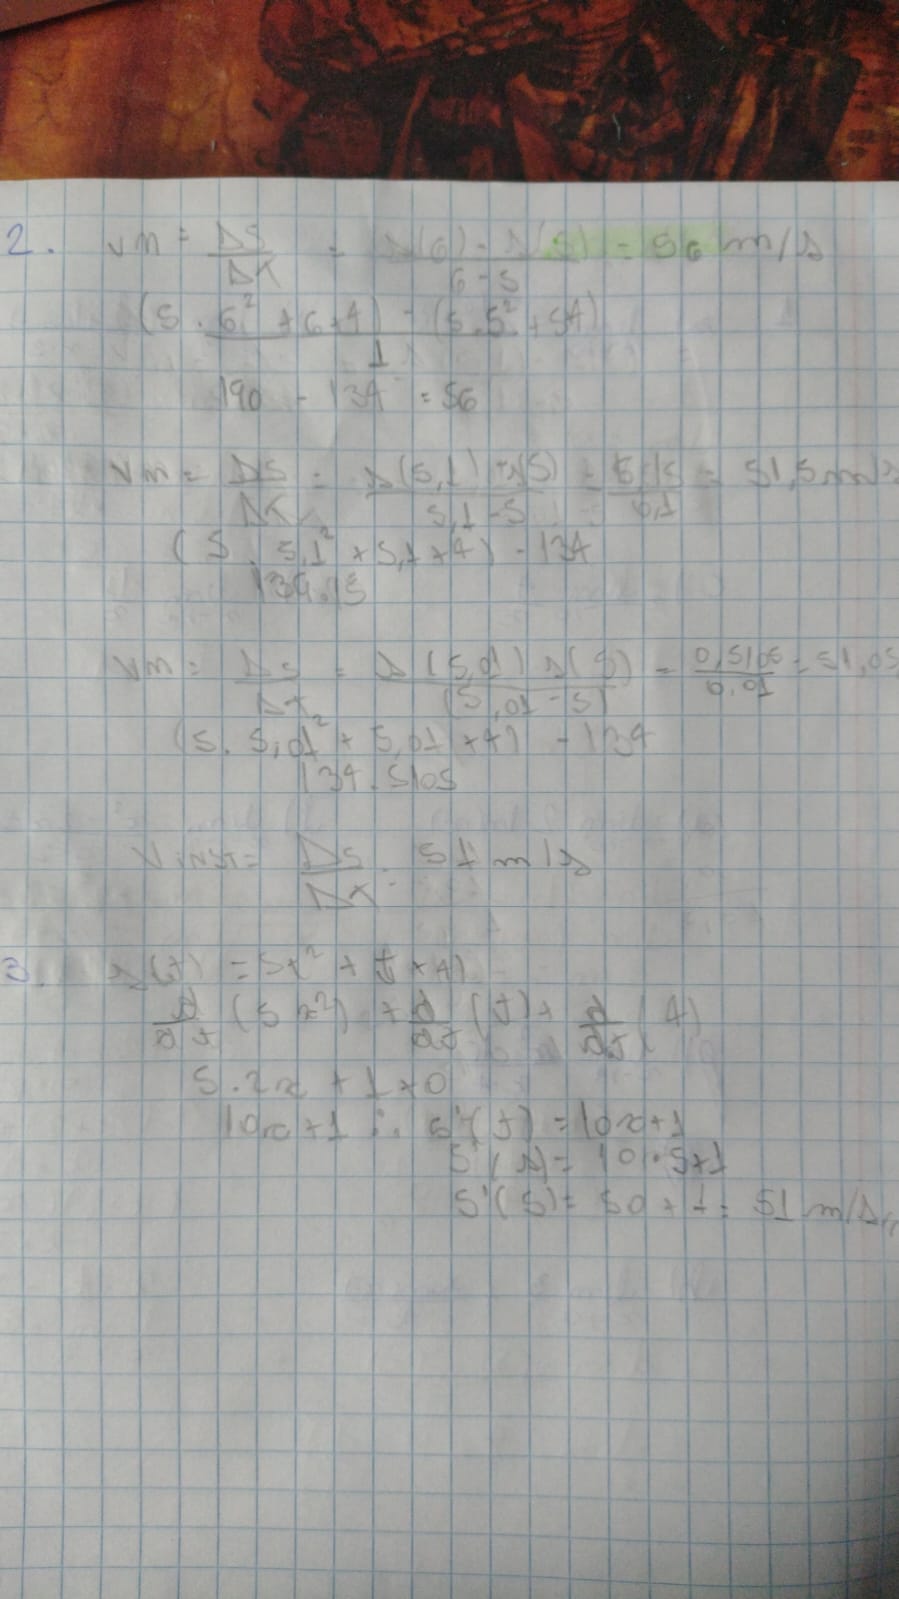 2. vm = ΔS/Δt = s(6) - s(5)/6-5 = 56 m/s
(5 . 6² + 6 + 4) - (5 . 5² + 54)/1
190 - 134 = 56
vm = ΔS/Δt = s(5,1) - s(5)/5,1 - 5 = 5,15/0,1 = 51,5 m/s
(5 . 5,1² + 5,1 + 4) - 134
139.15
vm = ΔS/Δt = s(5,01) s(5)/(5,01 - 5) = 0,5105/0,01 = 51,05
(5 . 5,01² + 5,01 + 4) - 134
134.5105
V INST = ΔS/Δt = 51 m/s
3. s(t) = 5t² + t + 4)
d/dt (5x²) + d/dt (t) + d/dt (4)
5 . 2x + 1 + 0
10x + 1 ∴ s'(t) = 10x + 1
S'(s) = 10 . 5 + 1
S'(5) = 50 + 1 = 51 m/s